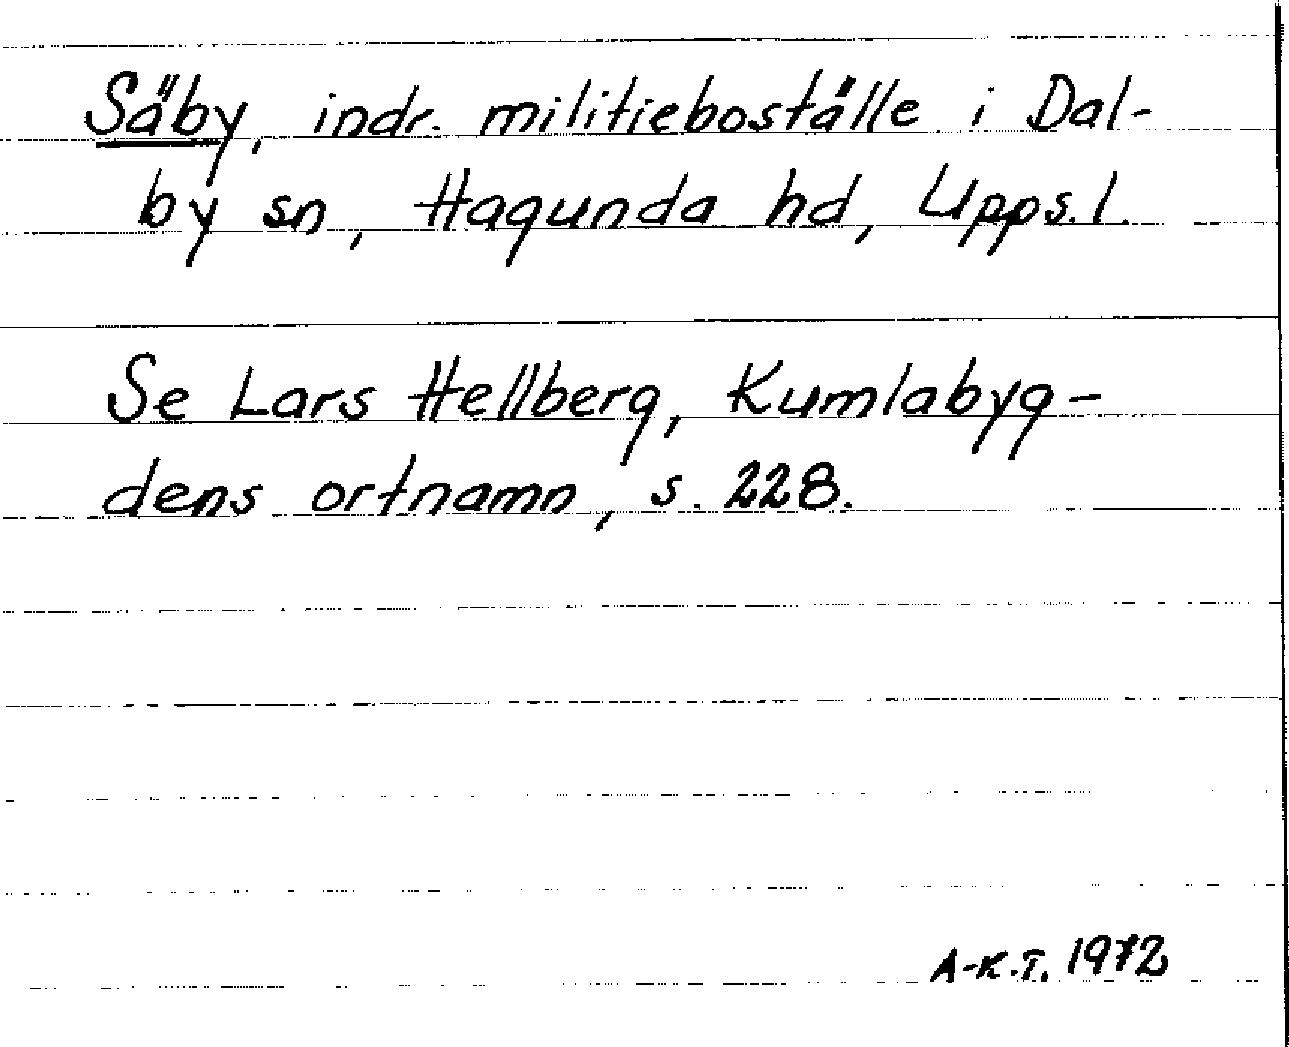 Säby, indr. militieboställe i Dal-
by sn, Hagunda hd, Upps. l.
Se Lars Hellberg, Kumlabyg-
dens ortnamn, s. 228.
A-K.T. 1972